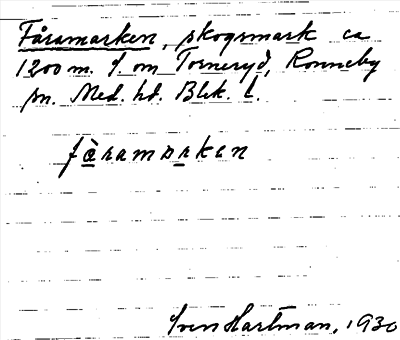 Fåramarken, skogsmark ca
1200 m. S. om Torneryd, Ronneby
sn. Med. hd. Blek. l.
fòramarken
Sven Hartman, 1930